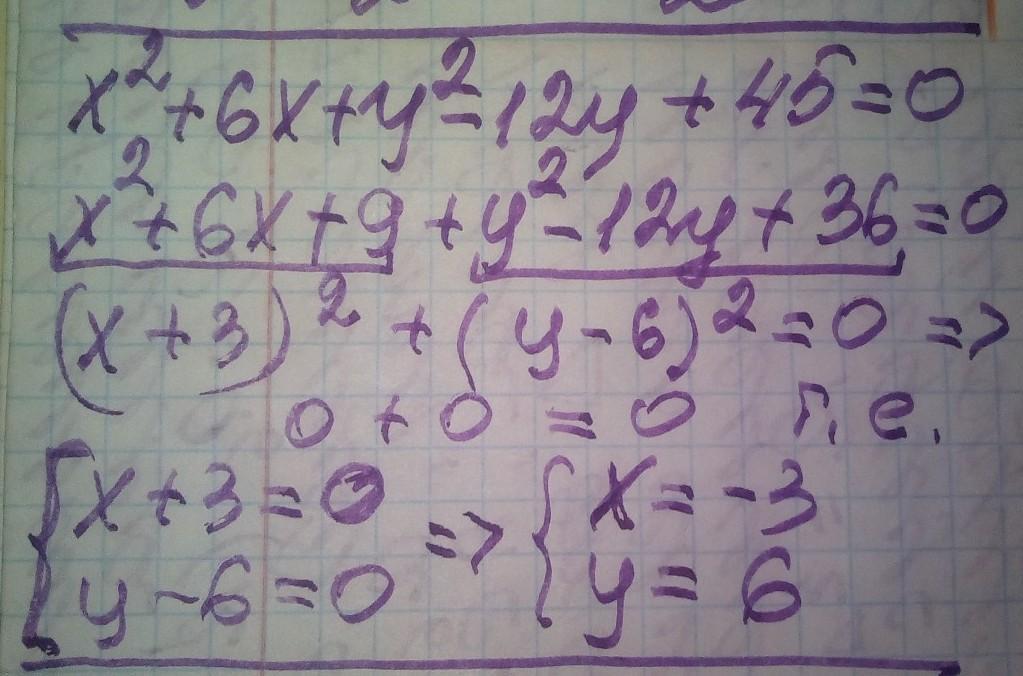 x²+6x+y²-12y+45=0
x²+6x+9+y²-12y+36=0
(x+3)²+(y-6)²=0 =>
0+0=0 т.е.
{x+3=0 => {x=-3
y-6=0 y=6